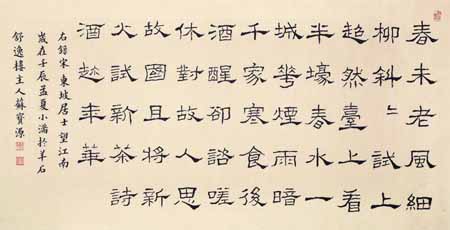 春未老風細
柳斜〻試上
超然臺上看
半壕春水一
城花煙雨暗
千家寒食後
酒醒卻諮嗟
休對故人思
故國且將新
火試新茶詩
酒趂年華
右錄宋東坡居士望江南
歲在壬辰孟夏小滿於羊石
舒逸樓主人蘇寶源